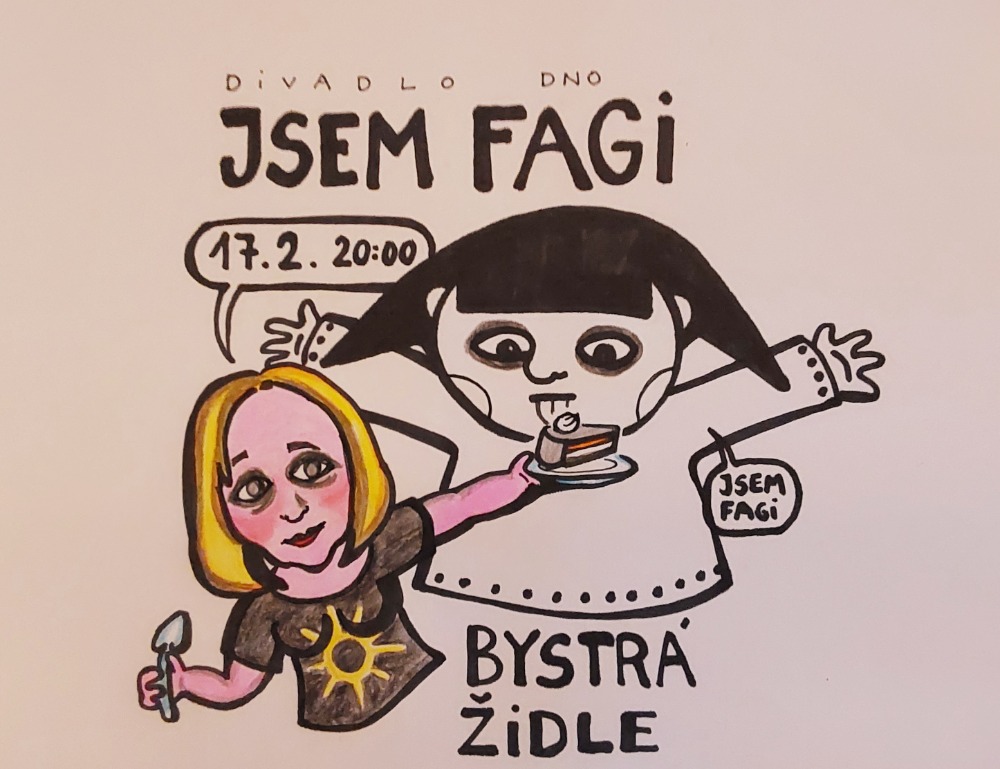 DiVADLO DNO
JSEM FAGi
17.2. 20:00
JSEM
FAGi
BYSTRÁ
ŽiDLE